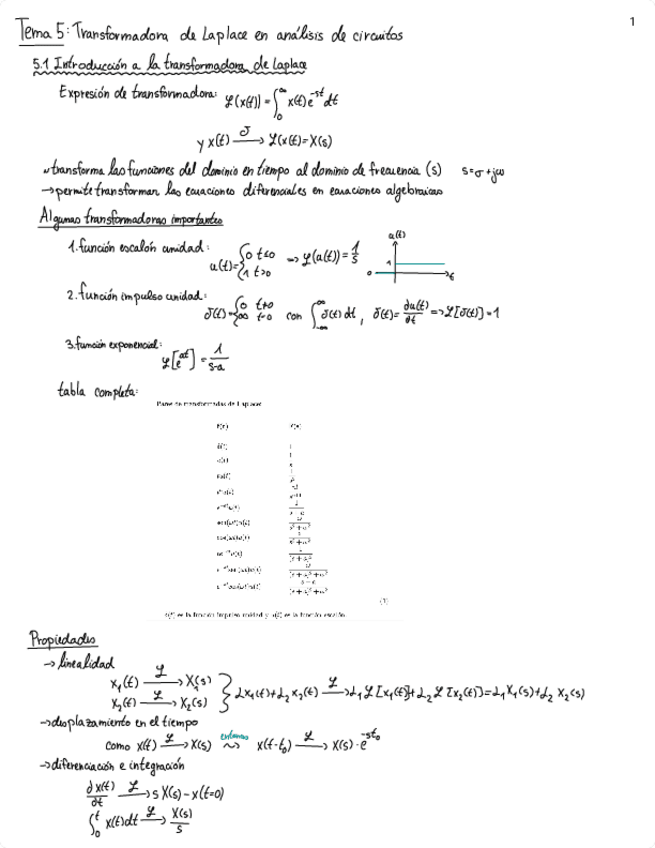 1
Tema 5: Transformadora de Laplace en análisis de circuitos
5.1 Introducción a la transformadora de Laplace
Expresión de transformadora: ℒ(x(t)) = ∫₀^∞ x(t)e^-st dt
y x(t) → ℒ(x(t)=X(s)
transforma las funciones del dominio en tiempo al dominio de frecuencia (s) s=σ+jω
→permite transformar las ecuaciones diferenciales en ecuaciones algebraicas
Algunas transformadoras importantes
1. función escalón unidad:
u(t)={0 t≤0 1 t>0 => ℒ(u(t)) = 1/s
u(t)
1
0
t
2. función impulso unidad:
δ(t)={0 t≠0 ∞ t=0 con ∫_-∞^∞ δ(t) dt, δ(t)= ∂u(t)/∂t => ℒ[δ(t)] = 1
3. función exponencial:
ℒ[e^at] = 1/s-a
tabla completa:
(1)
Propiedades
→ linealidad
x₁(t) ℒ→ X₁(s)
x₂(t) ℒ→ X₂(s) } α₁x₁(t)+α₂x₂(t) ℒ→ α₁ ℒ[x₁(t)]+α₂ ℒ[x₂(t)]=α₁X₁(s)+α₂ X₂(s)
→desplazamiento en el tiempo
como x(t) ℒ→ X(s) entonces x(t-t₀) ℒ→ X(s)·e^-st₀
→diferenciación e integración
∂x(t)/∂t ℒ→ s X(s) - x(t=0)
∫₀^t x(t)dt ℒ→ X(s)/s